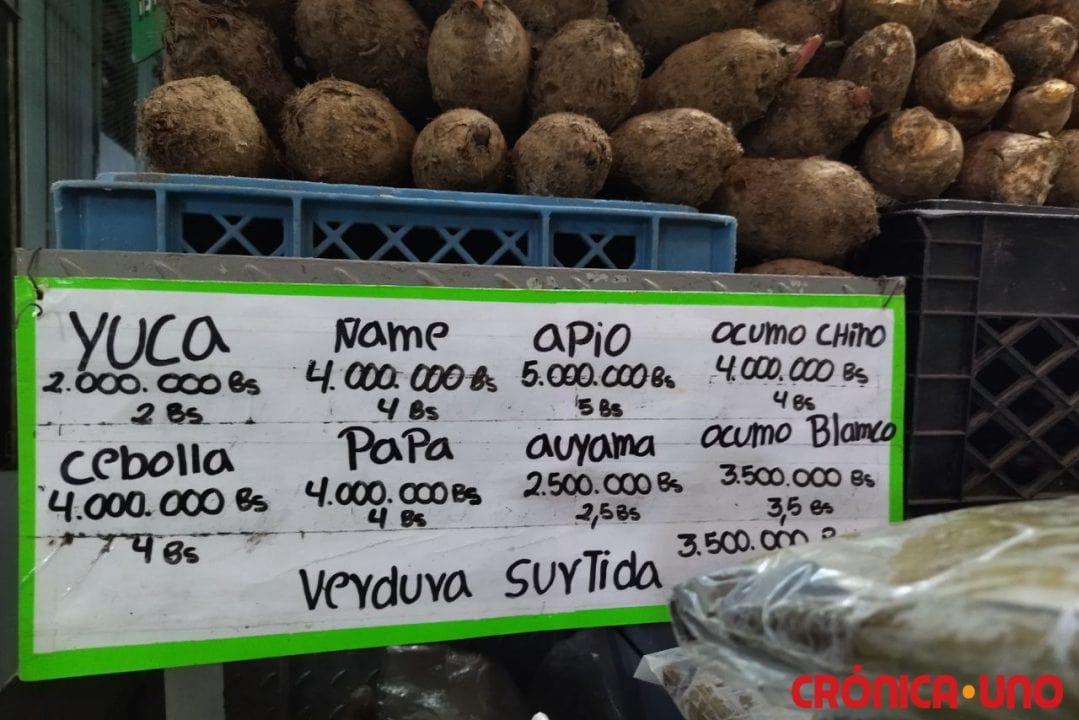 YUCa
2.000.000 Bs
2 Bs
Name
4.000.000 Bs
4 Bs
aPio
5.000.000 Bs
5 Bs
ocumo CHino
4.000.000 Bs
4 Bs
cebolla
4.000.000 Bs
4 Bs
PaPa
4.000.000 Bs
4 Bs
auyama
2.500.000 Bs
2,5 Bs
ocumo Blanco
3.500.000 Bs
3,5 Bs
verdura surTida
3.500.000
CRÓNICA·UNO